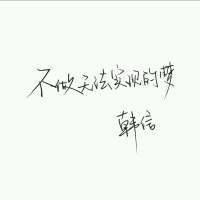 不做无法实现的梦
韩信